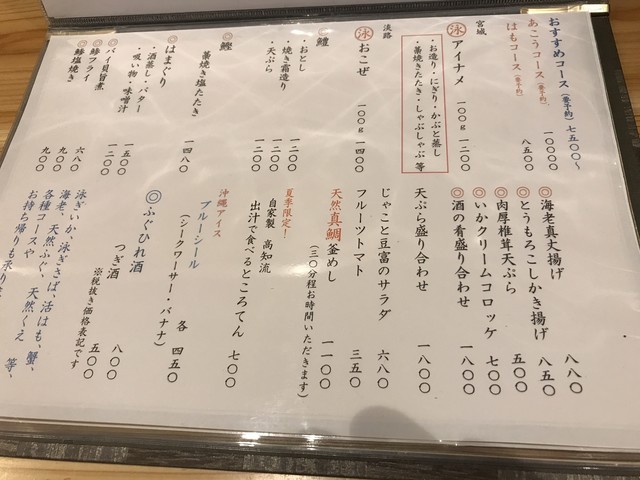 おすすめコース（要予約） 七五〇〇〜
あこうコース（要予約） 一〇〇〇〇
はもコース（要予約） 八五〇〇
宮城
泳 アイナメ 一〇〇g 一二〇〇
・お造り・にぎり・かぶと蒸し
・藁焼きたたき・しゃぶしゃぶ 等
淡路
泳 おこぜ 一〇〇g 一四〇〇
鱧
・おとし 一二〇〇
・焼き霜造り 一二〇〇
・天ぷら 一二〇〇
◎鰹
藁焼き塩たたき 一四八〇
◎はまぐり
・酒蒸し・バター 一五〇〇
・吸い物・味噌汁 一二〇〇
◎バイ貝旨煮 六八〇
◎鯵フライ 九〇〇
◎鯵塩焼き 九〇〇
◎海老真丈揚げ 八八〇
◎とうもろこしかき揚げ 八五〇
◎肉厚椎茸天ぷら 五〇〇
◎いかクリームコロッケ 七〇〇
◎酒の肴盛り合わせ 一八〇〇
天ぷら盛り合わせ 一八〇〇
じゃこと豆富のサラダ 六八〇
フルーツトマト 三五〇
天然真鯛釜めし 一一〇〇
（三〇分程お時間いただきます）
夏季限定！
自家製 高知流
出汁で食べるところてん 七〇〇
沖縄アイス
ブルーシール
（シークワーサー・バナナ） 各 四五〇
◎ふぐひれ酒 八〇〇
つぎ酒 五〇〇
※税抜き価格表記です
泳ぎいか、泳ぎさば、活はも、蟹、
海老、天然ふぐ、天然くえ 等、
各種コースや
お持ち帰りも承り